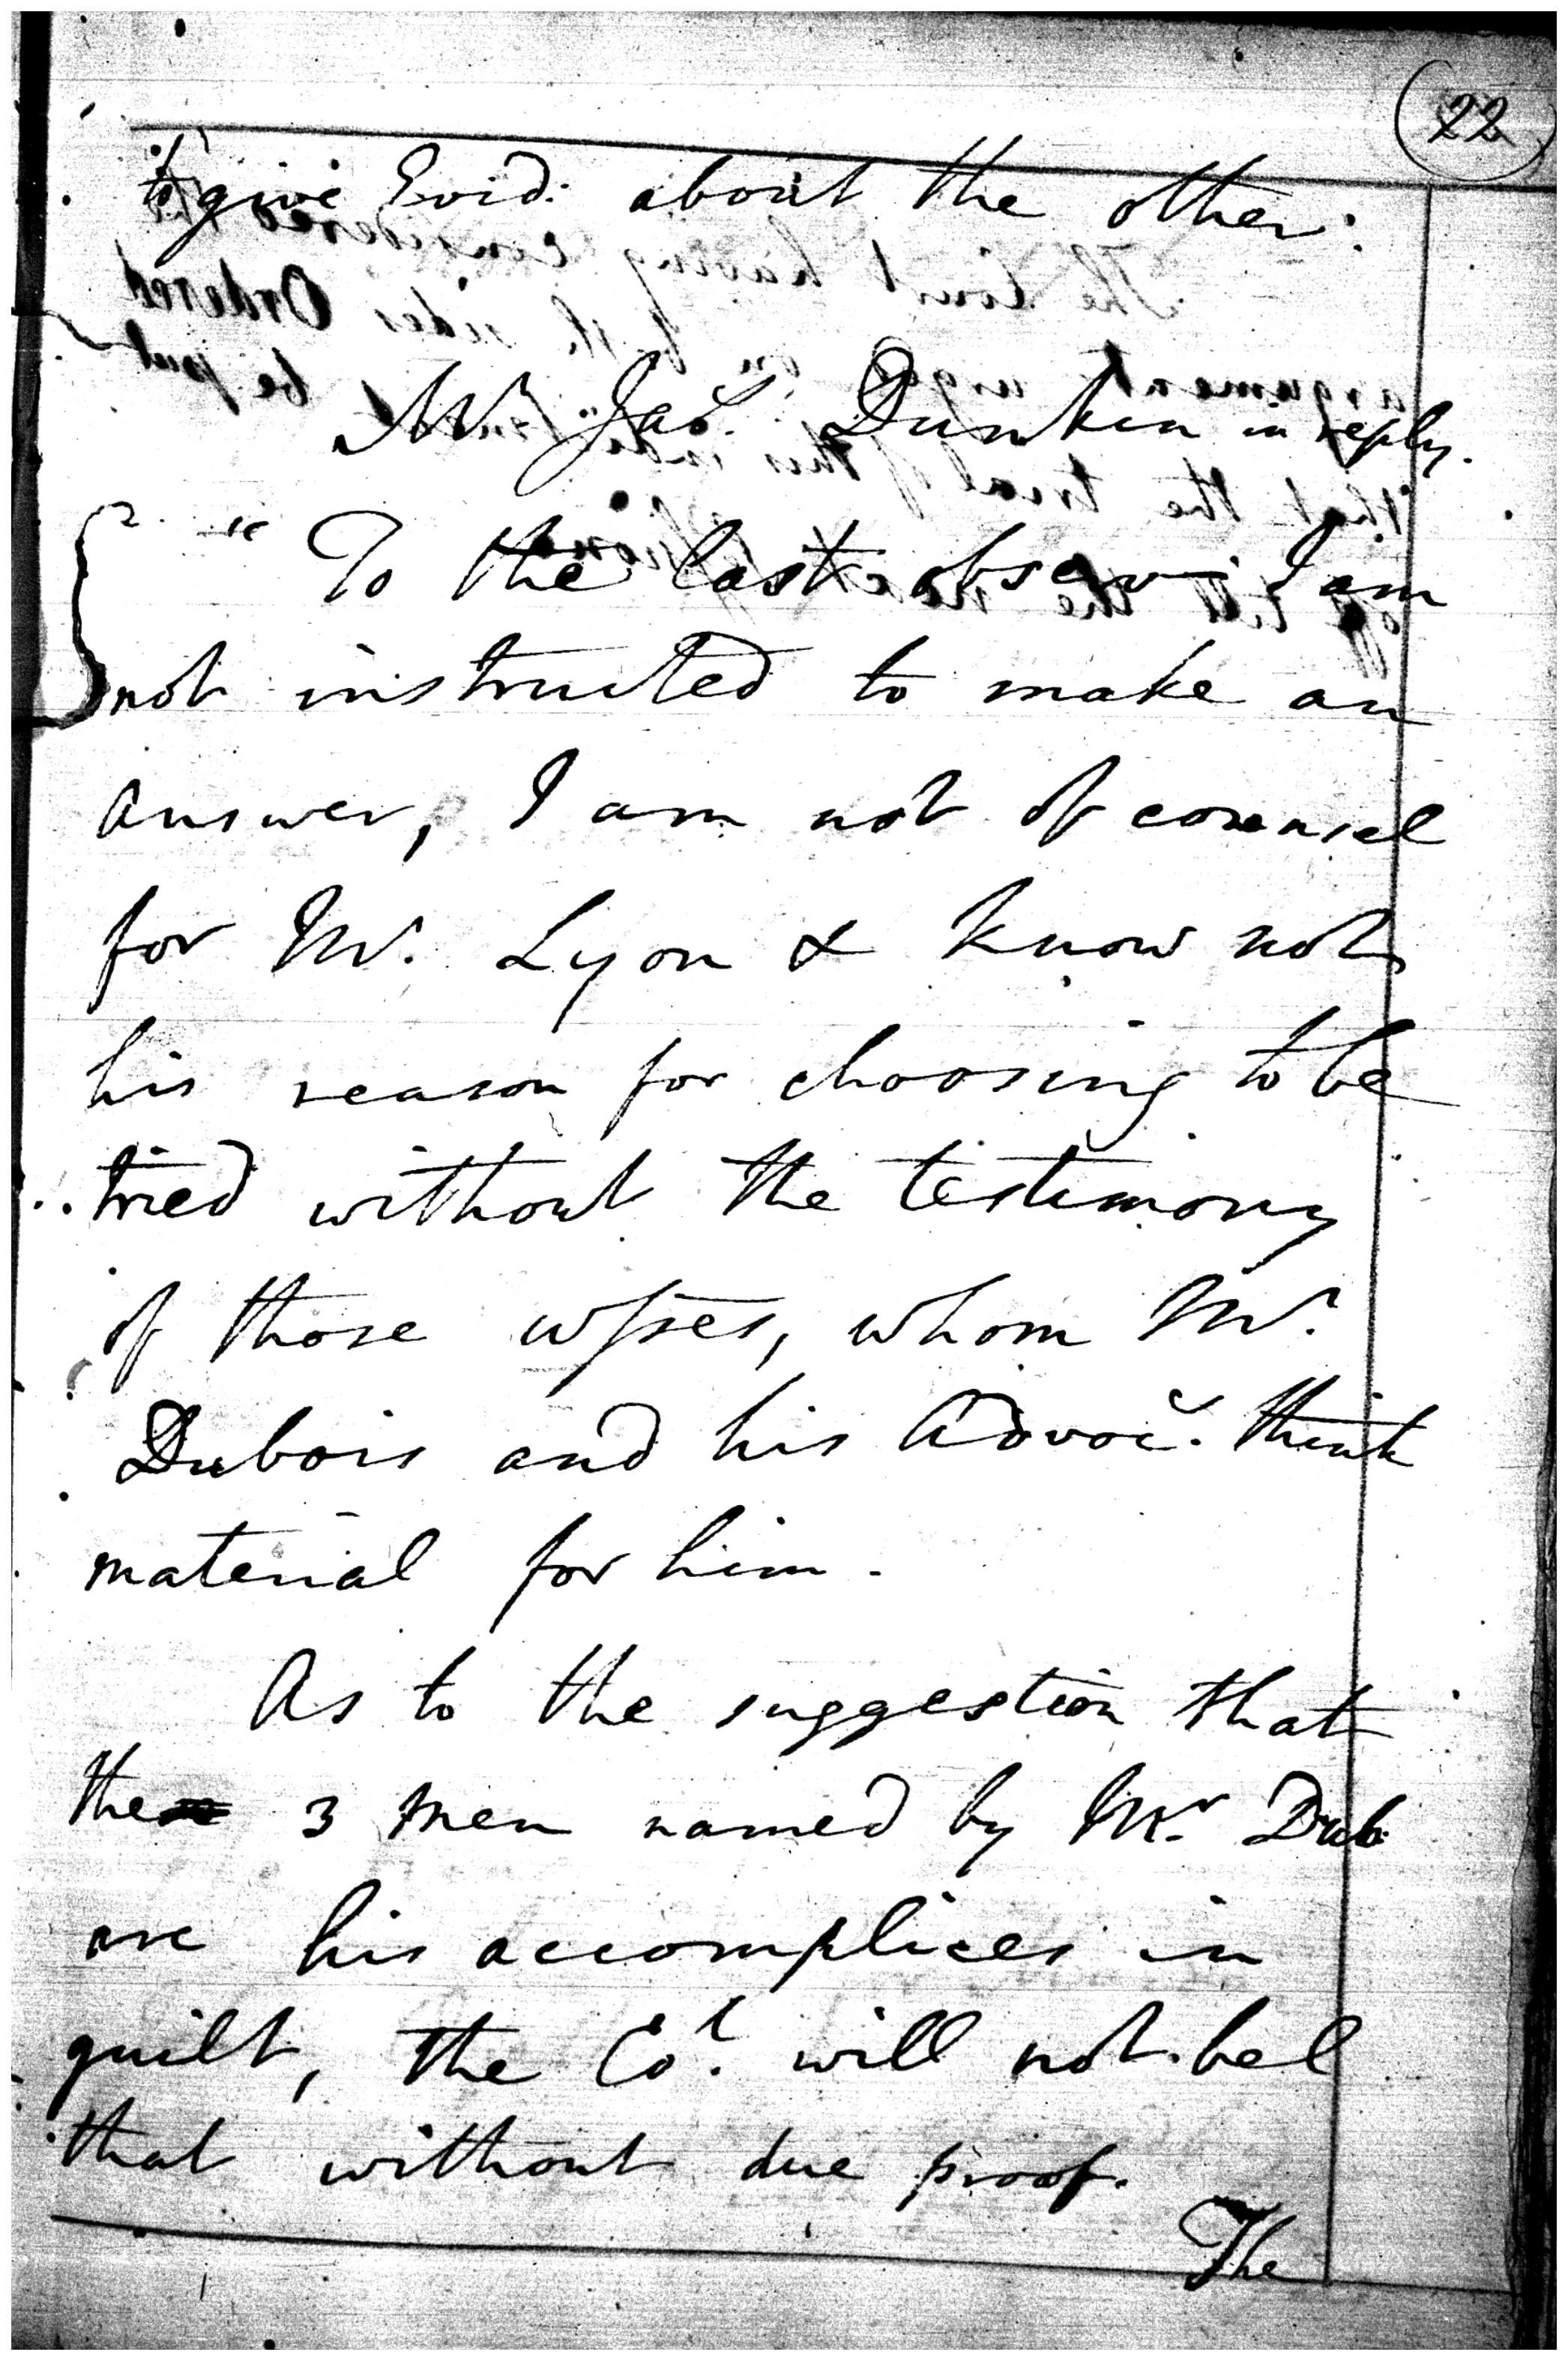 22
to give Evid: about the other:
Mr. Jas. Dunkin in reply.
" To the last observ: I am
not instructed to make an
answer, I am not of counsel
for Mr. Lyon & know not
his reason for choosing to be
tried without the testimony
of those wſses, whom Mr.
Dubois and his Advoc. think
material for him.
As to the suggestion that
the 3 men named by Mr. Dub:
are his accomplices in
guilt, the Cot. will not bel
that without due proof.
The